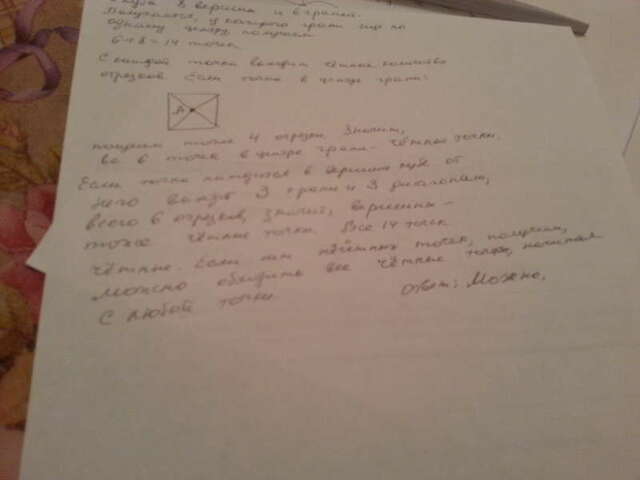 8 вершин и 6 граней.
Получается, у каждого грани еще по
одному центру получим
6+8=14 точек
С каждой точки выходит чётное количество
отрезков. Если точка в центре грани:
A
получим точке 4 отрезка. Значит,
все 6 точек в центре грани - чётные точки.
Если точка находится в вершине куба от
него входят 3 грани и 3 диагонали,
всего 6 отрезков, значит, вершины -
тоже чётные точки. Все 14 точек
чётные. Если нет нечётных точек, получим,
можно обходить все чётные точки, начиная
с любой точки.
Ответ: Можно.